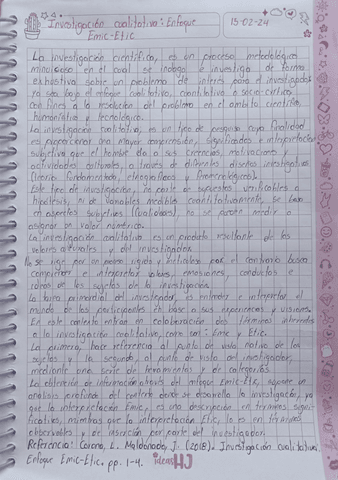 Investigación cualitativa: Enfoque
Emic-Etic
15-02-24
La investigación científica, es un proceso metodológico
minucioso en el cual se indaga e investiga de forma
exhaustiva sobre un problema de interés para el investigador
ya sea bajo el enfoque cualitativo, cuantitativo o socio-crítico
con fines a la resolución del problema en el ámbito científico,
humanística y tecnológico.
La investigación cualitativa, es un tipo de pesquisa cuya finalidad
es proporcionar una mayor comprensión, significados e interpretación
subjetiva que el hombre da a sus creencias, motivaciones y
actividades culturales, a través de diferentes diseños investigativos
(teoría fundamentada, etnográficos
Este tipo de investigación, no parte de supuestos verificables o
hipótesis, ni de variables medibles cuantitativamente, se basa
en aspectos subjetivos (cualidades), no se puede medir o
asignar un valor numérico.
La investigación cualitativa es un producto resultante de los
valores culturales y del investigador.
No se rige por un proceso rígido y por el contrario busca
comprender e interpretar valores, emociones, conductas e
ideas de los sujetos de la investigación.
La tarea primordial del investigador, es entender e interpretar el
mundo de los participantes en base a sus experiencias y visiones.
En este contexto entran en colaboración dos términos inherentes
a la investigación cualitativa, como son: Emic y Etic.
La primera, hace referencia al punto de vista nativo de los
sujetos y la segunda, al punto de vista del investigador,
mediante una serie de herramientas y de categorías.
La obtención de información a través del enfoque Emic-Etic, supone un
análisis profundo del contexto donde se desarrolla la investigación, ya
que la interpretación Emic, es una descripción en términos signi-
ficativos, mientras que la interpretación Etic, lo es en términos
observables y de inserción por parte del investigador.
Referencia: L. Maldonado, J. (2018). Investigación cualitativa:
Enfoque Emic-Etic, pp. 1-4.
ideas HJ